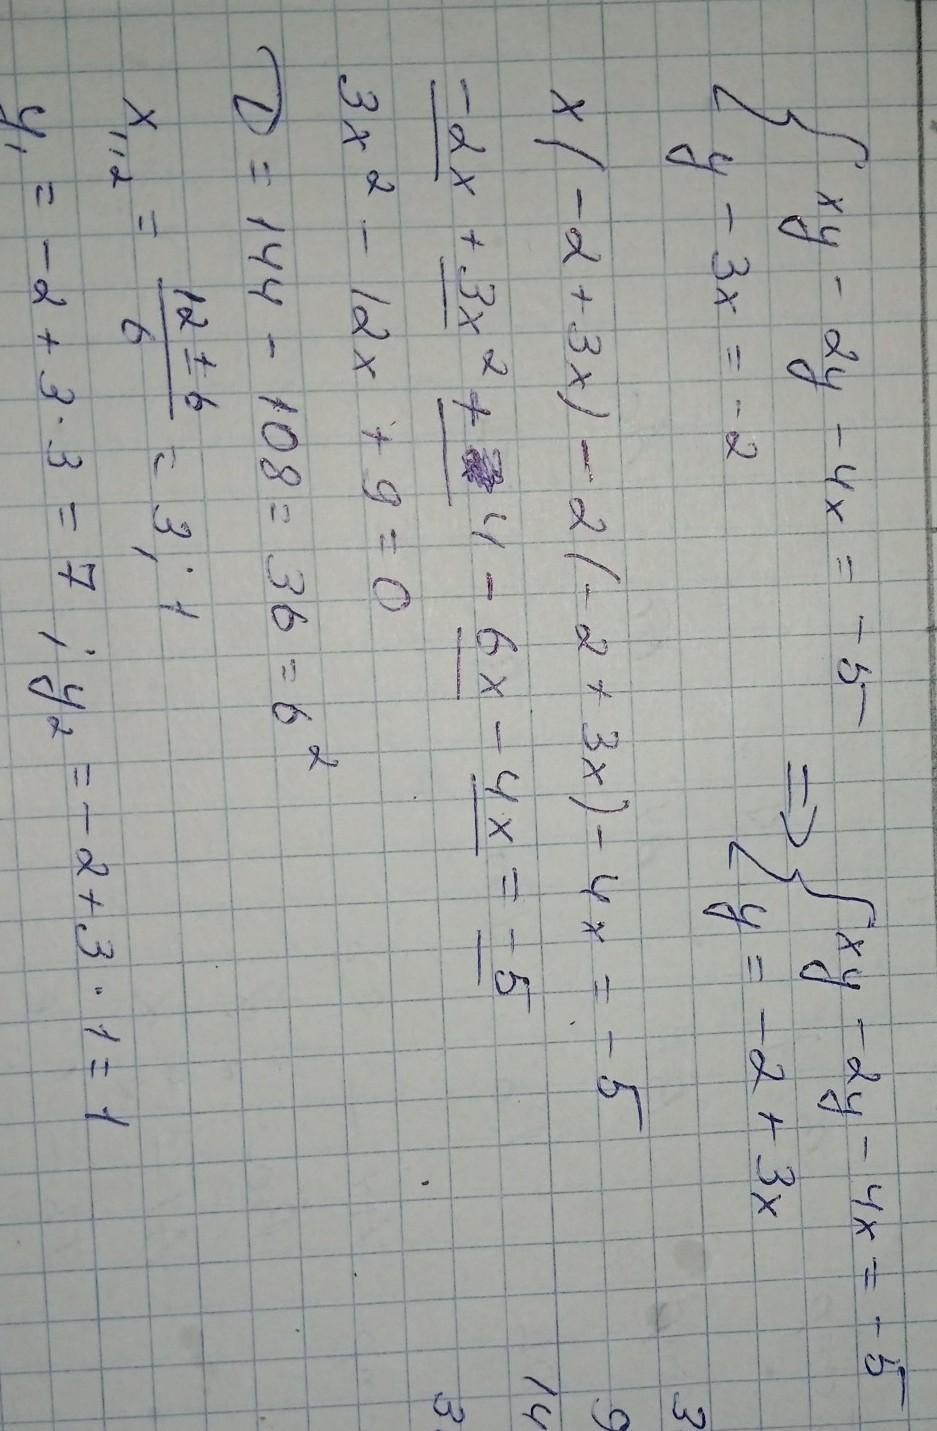 { xy - 2y - 4x = -5 => { xy - 2y - 4x = -5
y - 3x = -2 y = -2 + 3x
x(-2 + 3x) - 2(-2 + 3x) - 4x = -5
-2x + 3x² + 4 - 6x - 4x = -5
3x² - 12x + 9 = 0
D = 144 - 108 = 36 = 6²
x₁,₂ = (12 ± 6)/6 = 3; 1
y₁ = -2 + 3·3 = 7; y₂ = -2 + 3·1 = 1
3
9
14
3